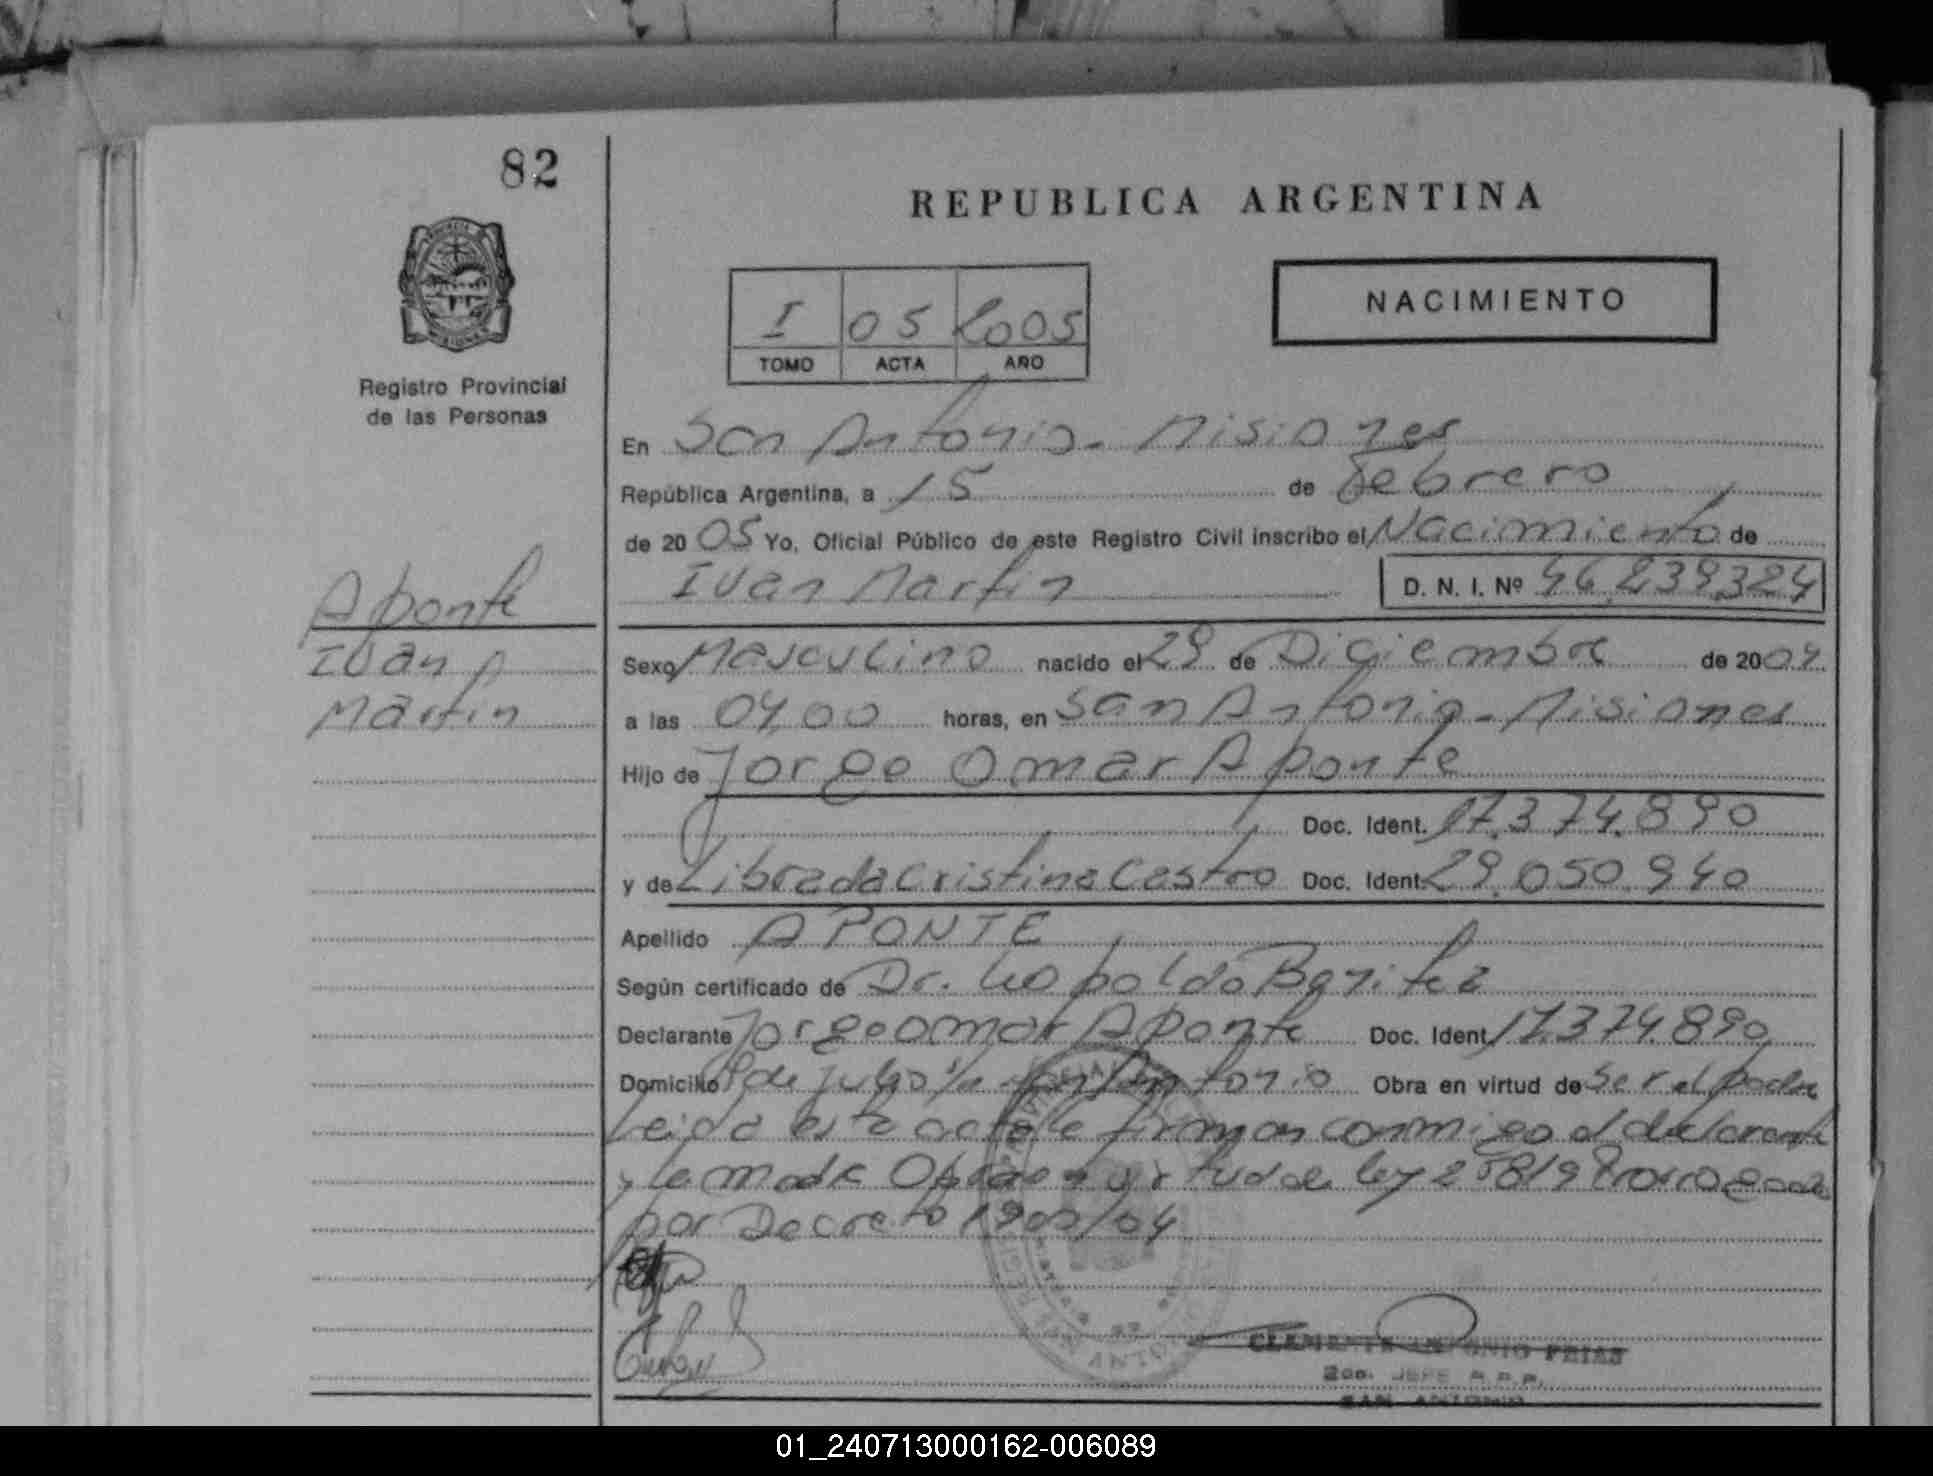 82
REPUBLICA ARGENTINA
NACIMIENTO
I 05 2005
TOMO ACTA AÑO
Registro Provincial
de las Personas
En San Antonio - Misiones
República Argentina, a 15 de Febrero
de 2005 Yo, Oficial Público de este Registro Civil inscribo el Nacimiento de
Ivan Martin D. N. I. Nº 46.239.324
Aponte
Ivan
Martin
Sexo Masculino nacido el 29 de Diciembre de 2004
a las 04,00 horas, en San Antonio - Misiones
Hijo de Jorge Omar Aponte
Doc. Ident. 17.374.890
y de Librada Cristina Castro Doc. Ident. 29.050.940
Apellido APONTE
Según certificado de Dr. Leopoldo Benitez
Declarante Jorge Omar Aponte Doc. Ident. 17.374.890
Domicilio 9 de julio s/n San Antonio Obra en virtud de ser el padre
Leida esta acta la firman conmigo el declarante
y la madre Obrae virtud de ley 25819 Prorrogada
por Decreto 1900/04
CLEMENTE ANTONIO FRIAS
2do. JEFE R.P.P.
SAN ANTONIO
01_240713000162-006089